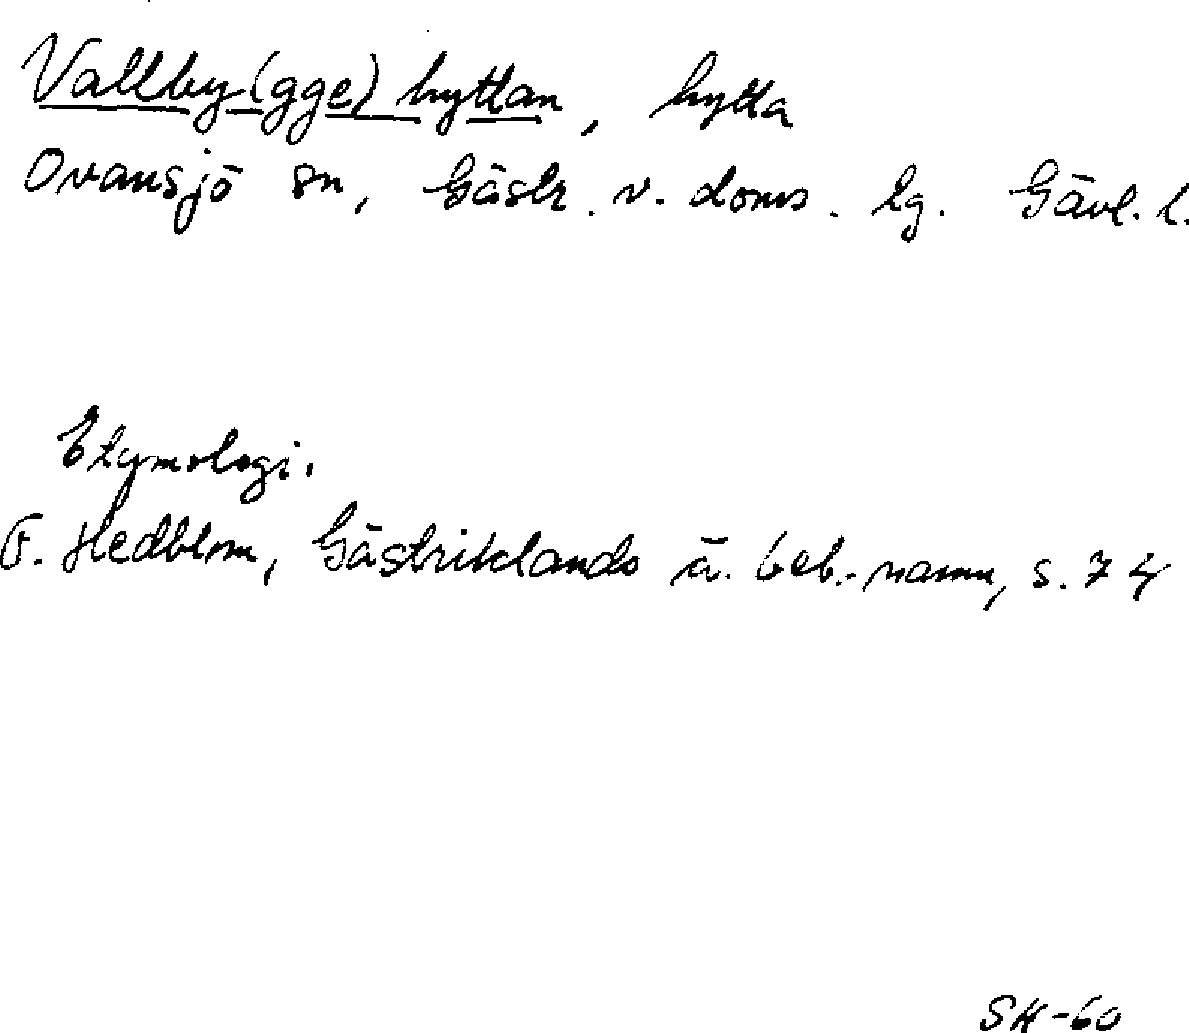 Vallby(gge)hyttan, hytta
Ovansjö sn, Gästr. v. doms. lg. Gävl. l.
Etymologi.
F. Hedblom, Gästriklands ä. beb.-namn, s. 74
SK-60